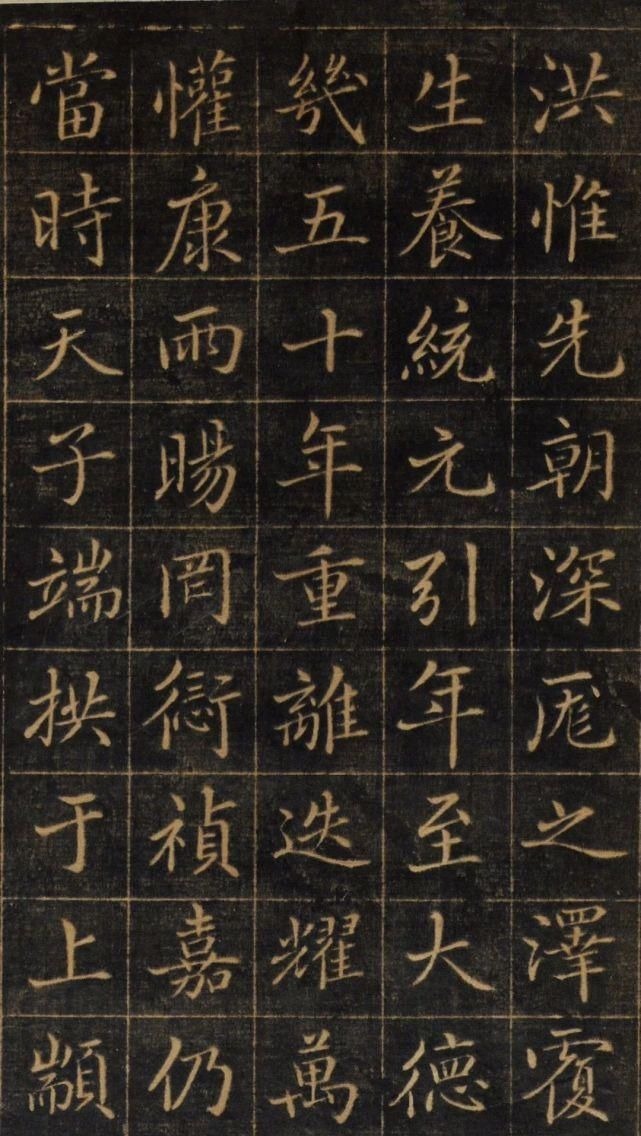 洪惟先朝深厖之澤覆
生養統元引年至大德
幾五十年重離迭耀萬
懽康雨暘罔愆禎嘉仍
當時天子端拱于上顓